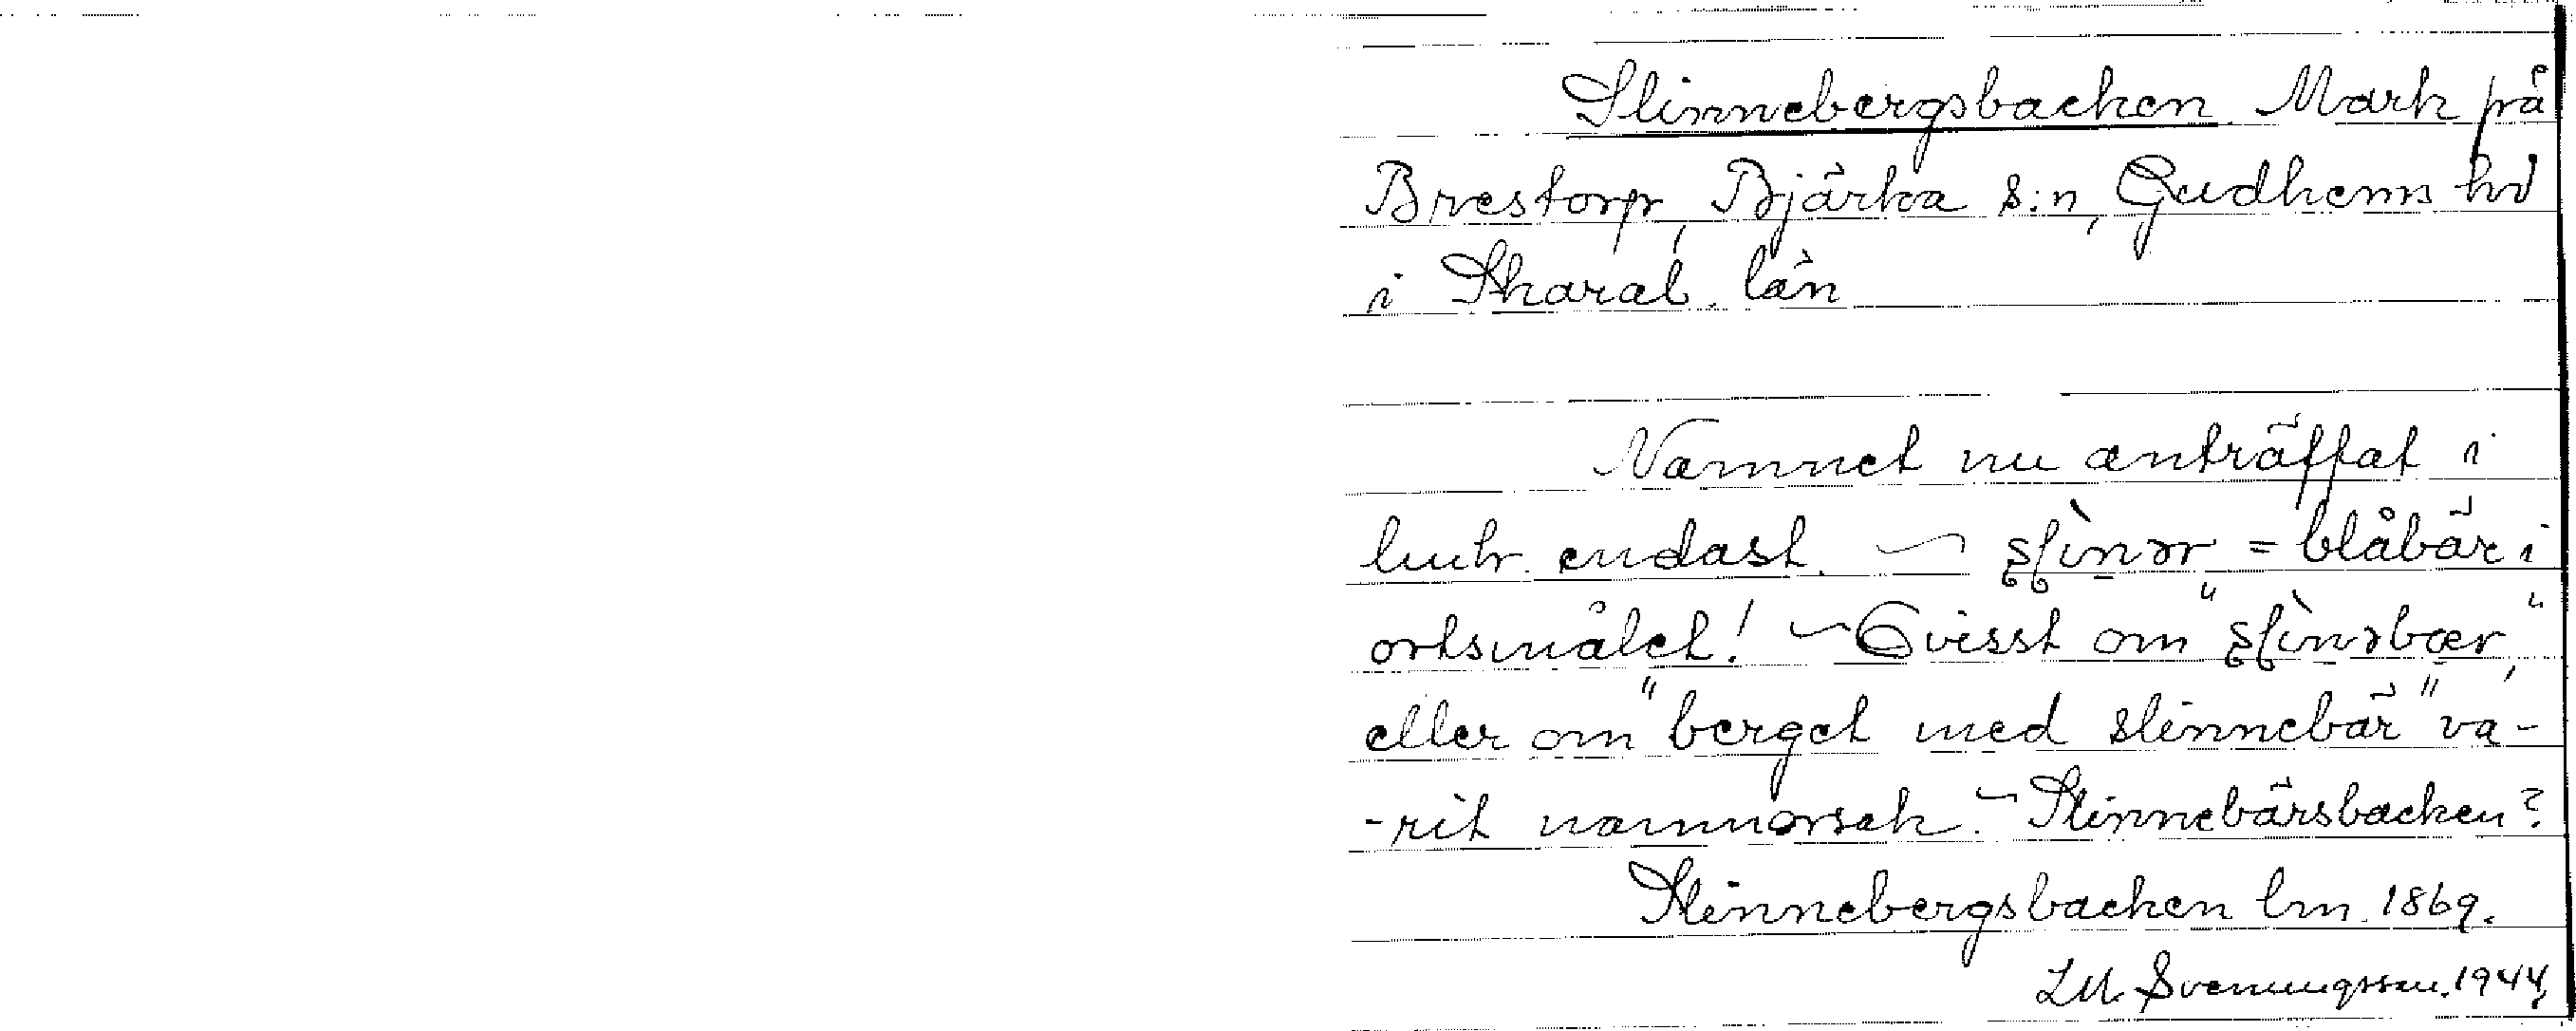 Slinnebergsbacken. Mark på
Brestorp, Bjärka s:n, Gudhems hd
i Skarab. län
Namnet nu anträffat i
lmhr endast. — = blåbär i
ortsmålet! — Ovisst om
eller om "berget med slinnebär" va-
-rit namnorsak. — Slinnebärsbacken?
Slinnebergsbacken lm. 1869.
Svenungsson. 1944,